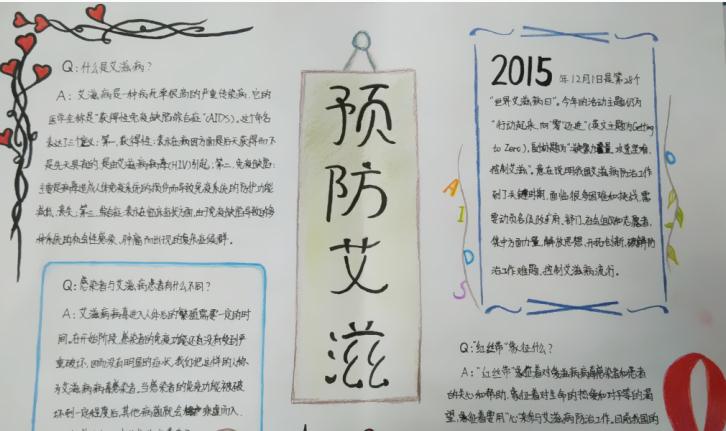 Q:什么是艾滋病?
A:艾滋病是一种病死率极高的严重传染病,它的
医学全称是"获得性免疫缺陷综合症"(AIDS)。这个命名
表达了三个定义:第一,获得性:表示在病因方面是后天获得而不
是先天具有的,是由艾滋病病毒(HIV)引起;第二,免疫缺陷:
主要是病毒造成人体免疫系统的损伤而导致免疫系统的防护功能
Q:感染者与艾滋病患者有什么不同?
A:艾滋病病毒进入人体后的繁殖需要一定的时
间。在开始阶段,感染者的免疫功能还没有受到严
重破坏,因而没有明显的症状,我们把这样的人称
为艾滋病病毒感染者。当感染者的免疫功能被破
坏到一定程度后,其他病菌就会乘虚而入,
预防艾滋
2015年12月1日是第28个
"世界艾滋病日"。今年的活动主题仍为
"行动起来,向'零'迈进"(英文主题为Getting
to Zero),副标题为"凝聚力量,攻坚克难,
控制艾滋"。意在说明我国艾滋病防治工作
到了关键时期,面临很多困难和挑战,需
要动员各级政府、部门、社会组织和志愿者,
集中力量,解放思想,开拓创新,破解防
治工作难题,控制艾滋病流行。
AIDS
Q:"红丝带"象征什么?
A:"红丝带"象征着对艾滋病病毒感染者和患者
的关心和帮助,象征着对生命的热爱和对平等的渴
望,象征着要用"心"来参与艾滋病防治工作。目前我国的